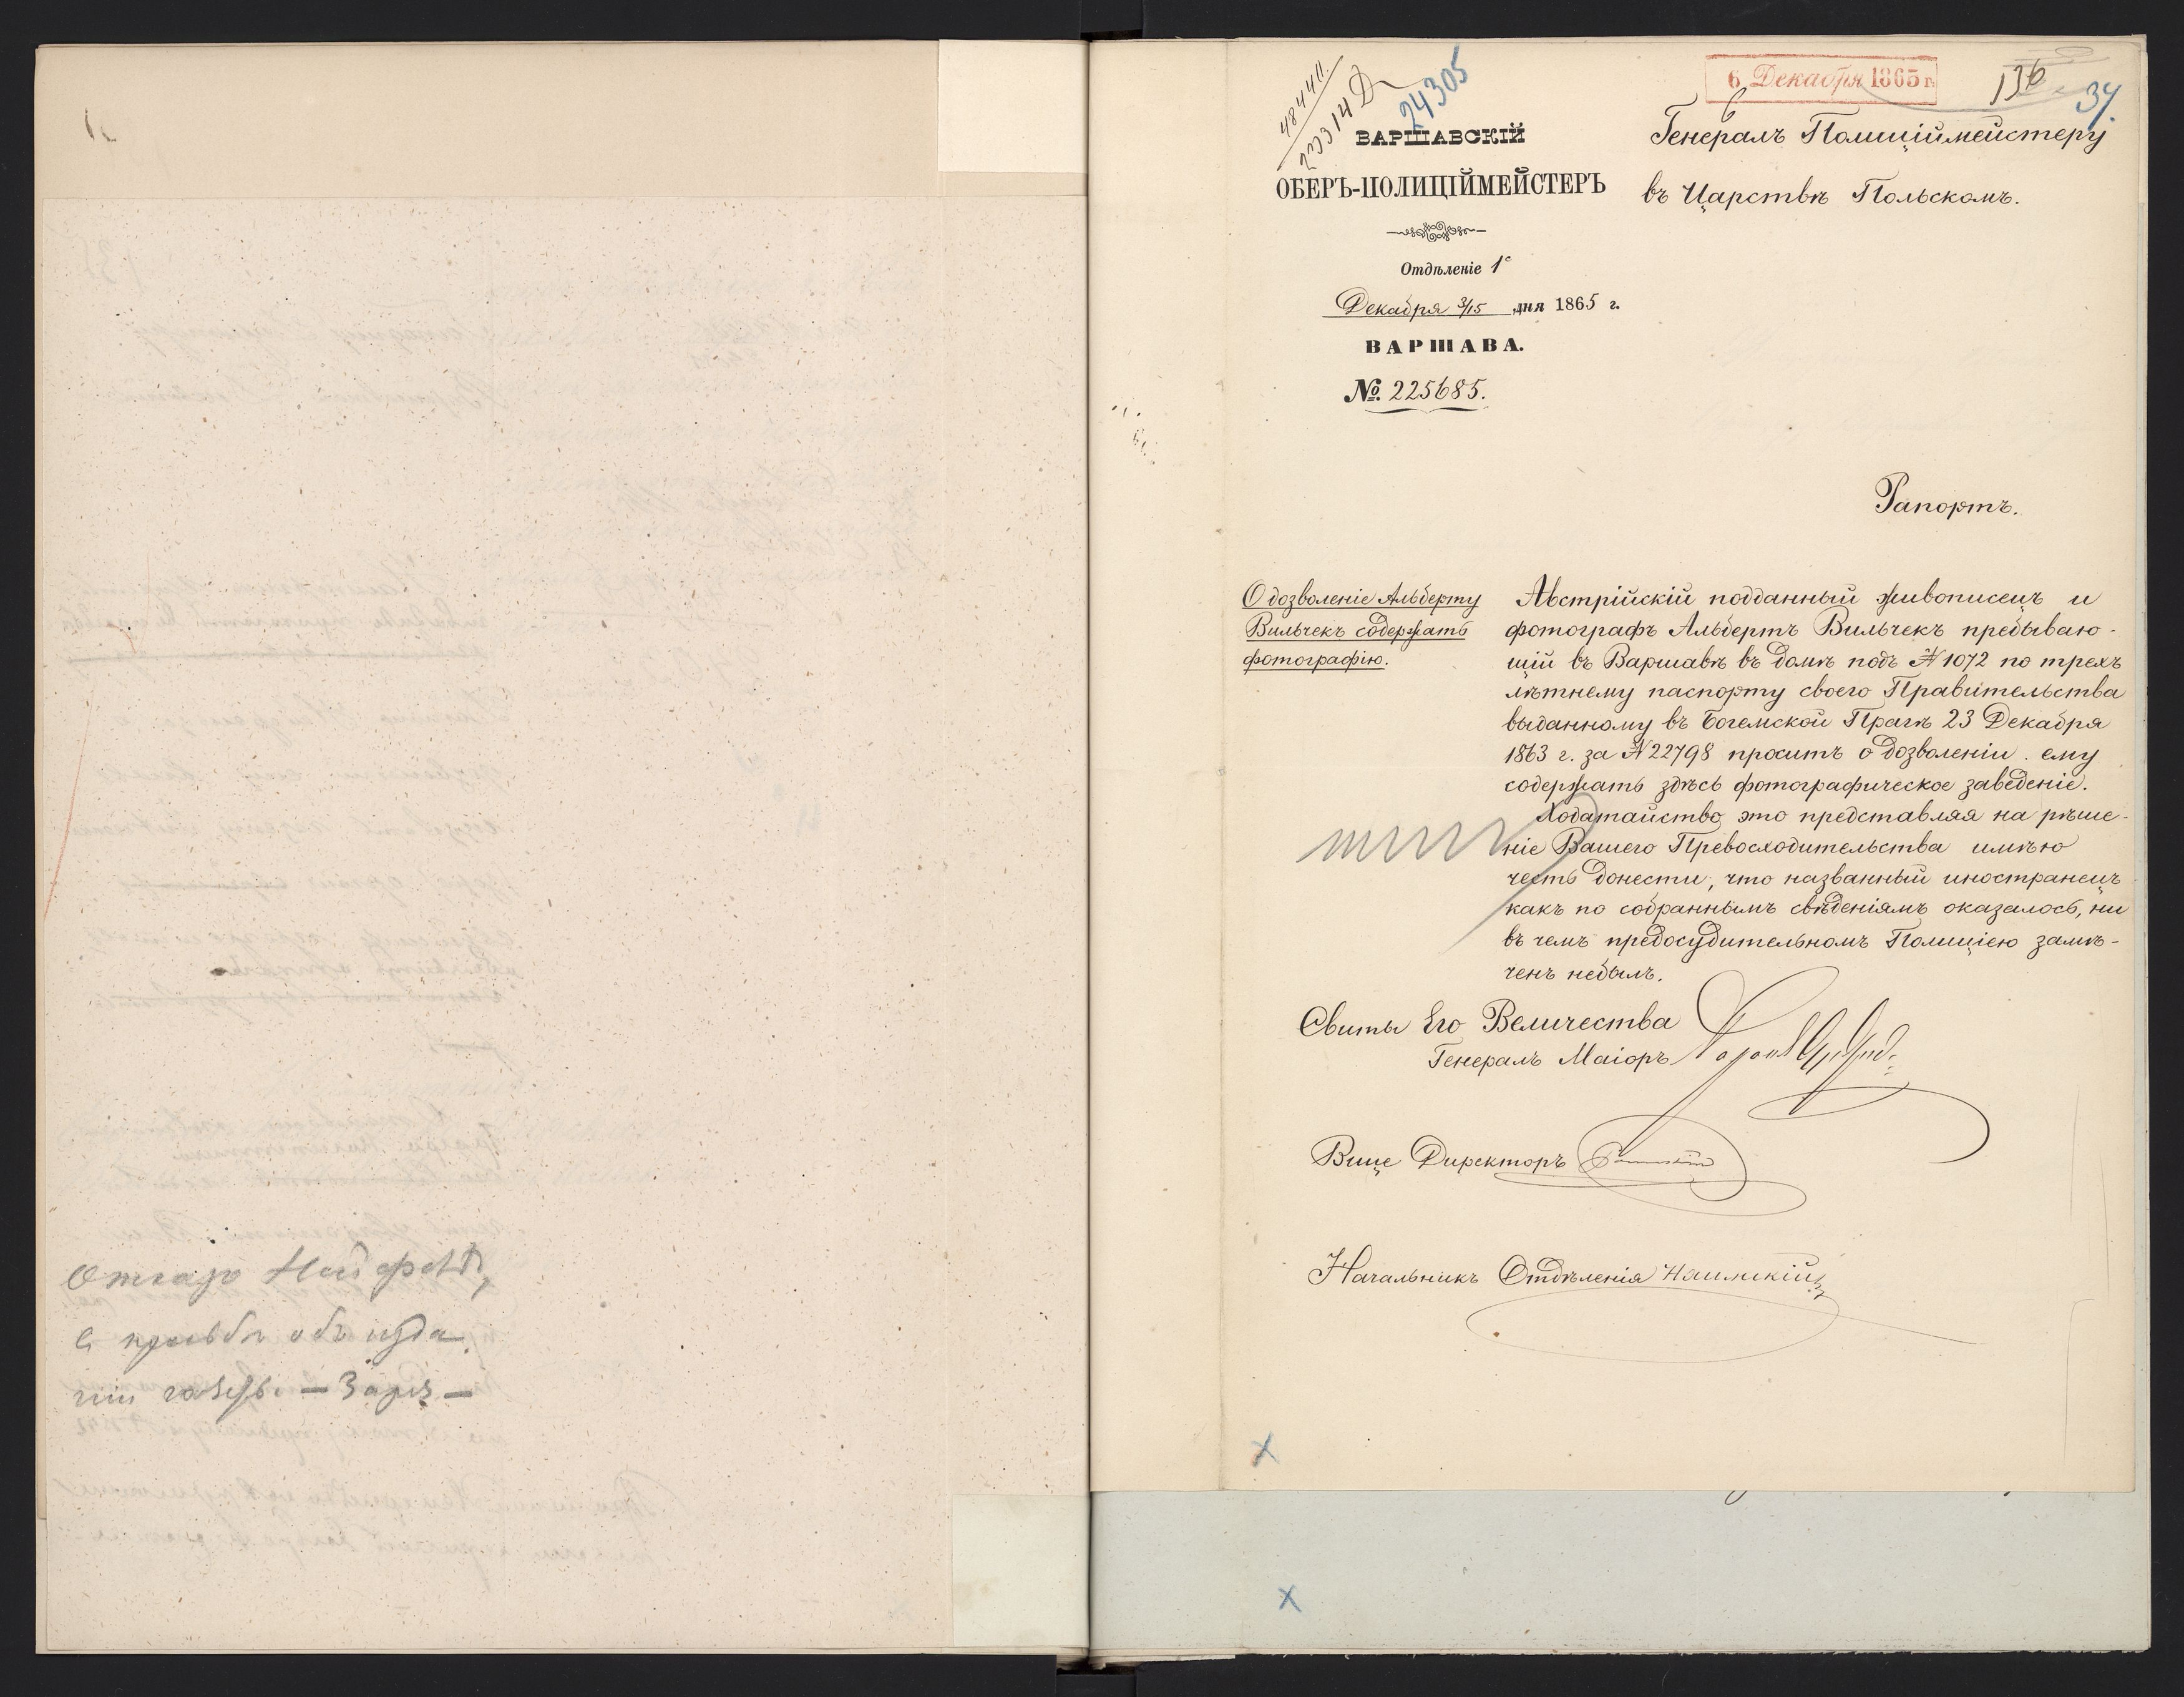 Отказъ
о просьбѣ объ изда
ніи
48440
22314 Д
24305
6 Декабря 1865 г.
136
34.
ВАРШАВСКІЙ
ОБЕРЪ-ПОЛИЦІЙМЕЙСТЕРЪ
Отдѣленіе 1е
Декабря 3/15 дня 1865 г.
ВАРШАВА.
№ 225685.
Генералъ Полиціймейстеру
въ Царствѣ Польскомъ.
Рапортъ.
О дозволеніе Альберту
Вильчекъ содержать
фотографію.
Австрійскій подданный живописецъ и
фотографъ Альбертъ Вильчекъ пребываю-
щій въ Варшавѣ въ домѣ подъ № 1072 по трехъ
лѣтнему паспорту своего Правительства
выданному въ Богемской Прагѣ 23 Декабря
1863 г. за № 22798 проситъ о дозволеніи ему
содержать здѣсь фотографическое заведеніе.
Ходатайство это представляя на рѣше-
ніе Вашего Превосходительства имѣю
честь донести, что названный иностранецъ
какъ по собраннымъ свѣденіямъ оказалось, ни
въ чемъ предосудительномъ Полиціею замѣ-
ченъ небылъ.
Свиты Его Величества
Генералъ Маіоръ
Вице Директоръ
Начальникъ Отдѣленія